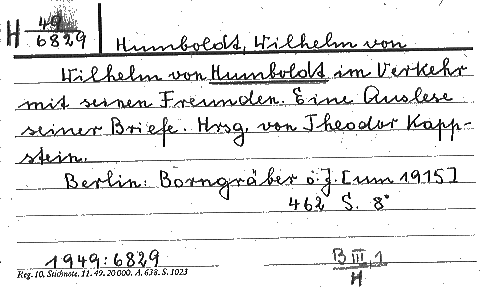 H 49
6829
Humboldt, Wilhelm von
Wilhelm von Humboldt im Verkehr
mit seinen Freunden. Eine Auslese
seiner Briefe. Hrsg. von Theodor Kapp-
stein.
Berlin: Borngräber o. J. [um 1915]
462 S. 8°
1949:6829
B III, 1
H
Reg. 10. Stichnote. 11. 49. 20000. A. 638. S. 1023